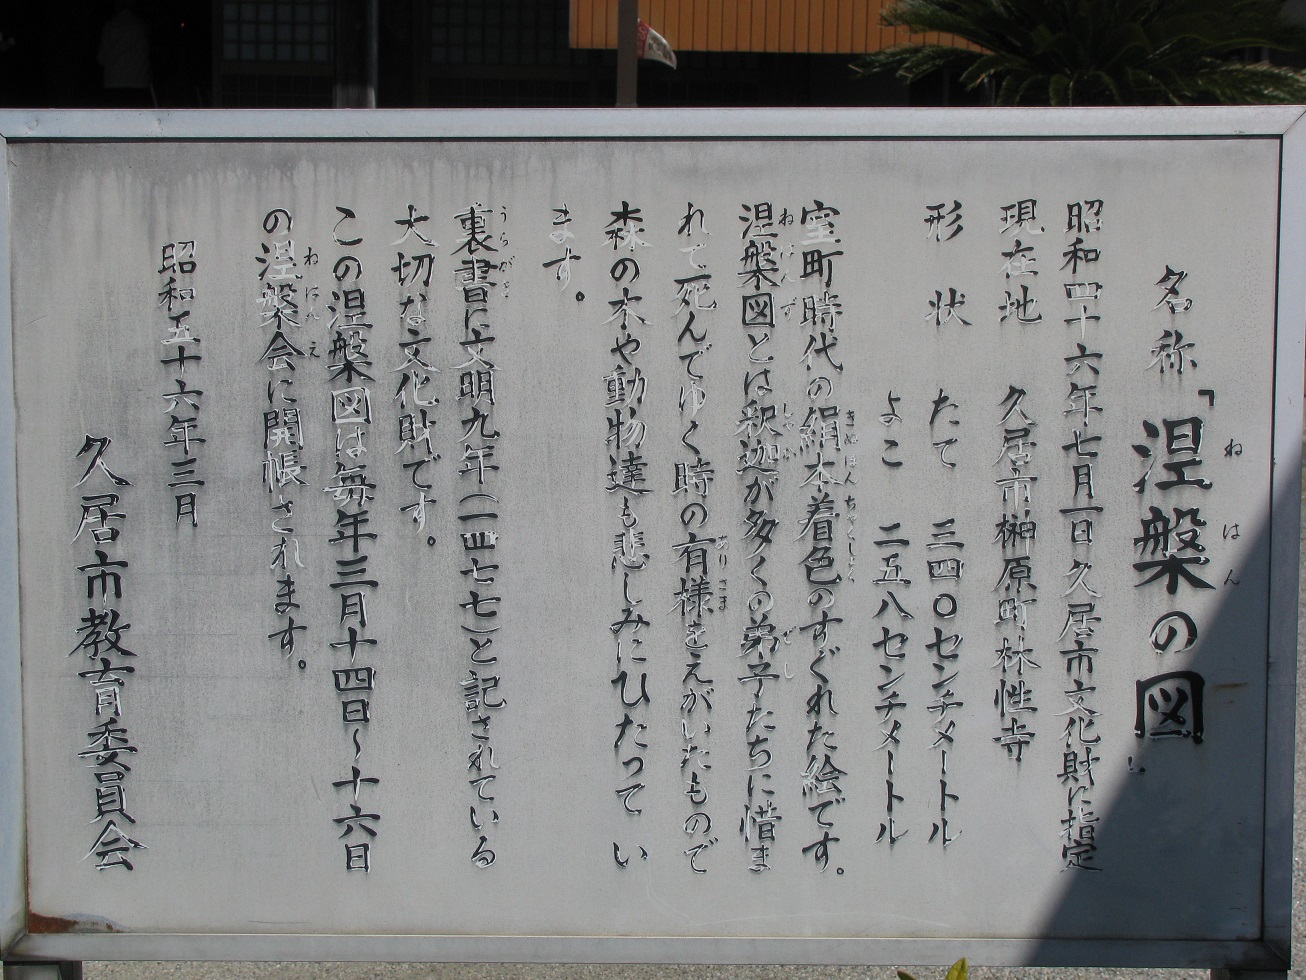 名称「涅槃の図」
昭和四十六年七月一日久居市文化財に指定
現在地 久居市榊原町林性寺
形状 たて 三四〇センチメートル
よこ 二五八センチメートル
室町時代の絹本着色のすぐれた絵です。
涅槃図とは釈迦が多くの弟子たちに惜ま
れて死んでゆく時の有様をえがいたもので
森の木や動物達も悲しみにひたってい
ます。
裏書に文明九年(一四七七)と記されている
大切な文化財です。
この涅槃図は毎年三月十四日~十六日
の涅槃会に開帳されます。
昭和五十六年三月
久居市教育委員会